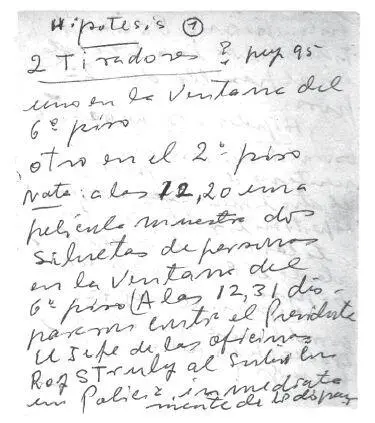 Hipotesis ①
2 Tiradores ? pag 95
uno en la ventana del
6º piso
otro en el 2º piso
Nota: a las 12,20 una
pelicula muestra dos
siluetas de personas
en la ventana del
6º piso (A las 12,31 dis-
pararon contra el Presidente
el Jefe de las oficinas
Roy S Truly al subir con
un Policia, inmediata
mente de los disparos